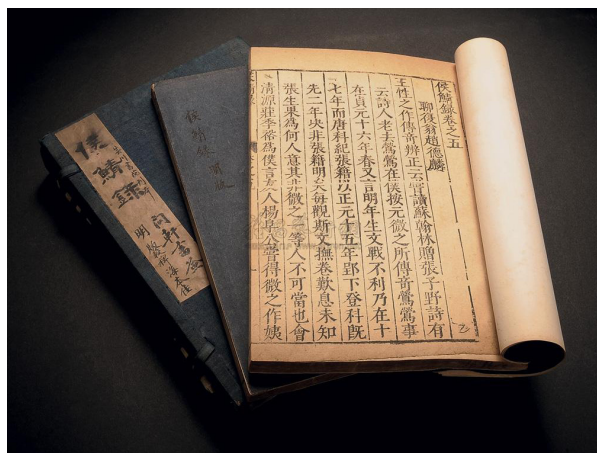 侯鯖録卷之五
聊復翁趙德麟
王性之作傳奇辨正云嘗讀蘇翰林贈張子野詩有
云詩人老去鶯鶯在僕按元微之所傳奇鶯鶯事
在貞元十六年春又言明年生文戰不利乃在十
七年而唐科紀張籍以正元十五年郢下登科既
先二年决非張籍明矣每觀斯文撫卷歎息未知
張生果為何人意其非微之一等人不可當也會
清源莊季裕為僕言友人楊阜公嘗得微之作姨
侯鯖録
侯鯖録